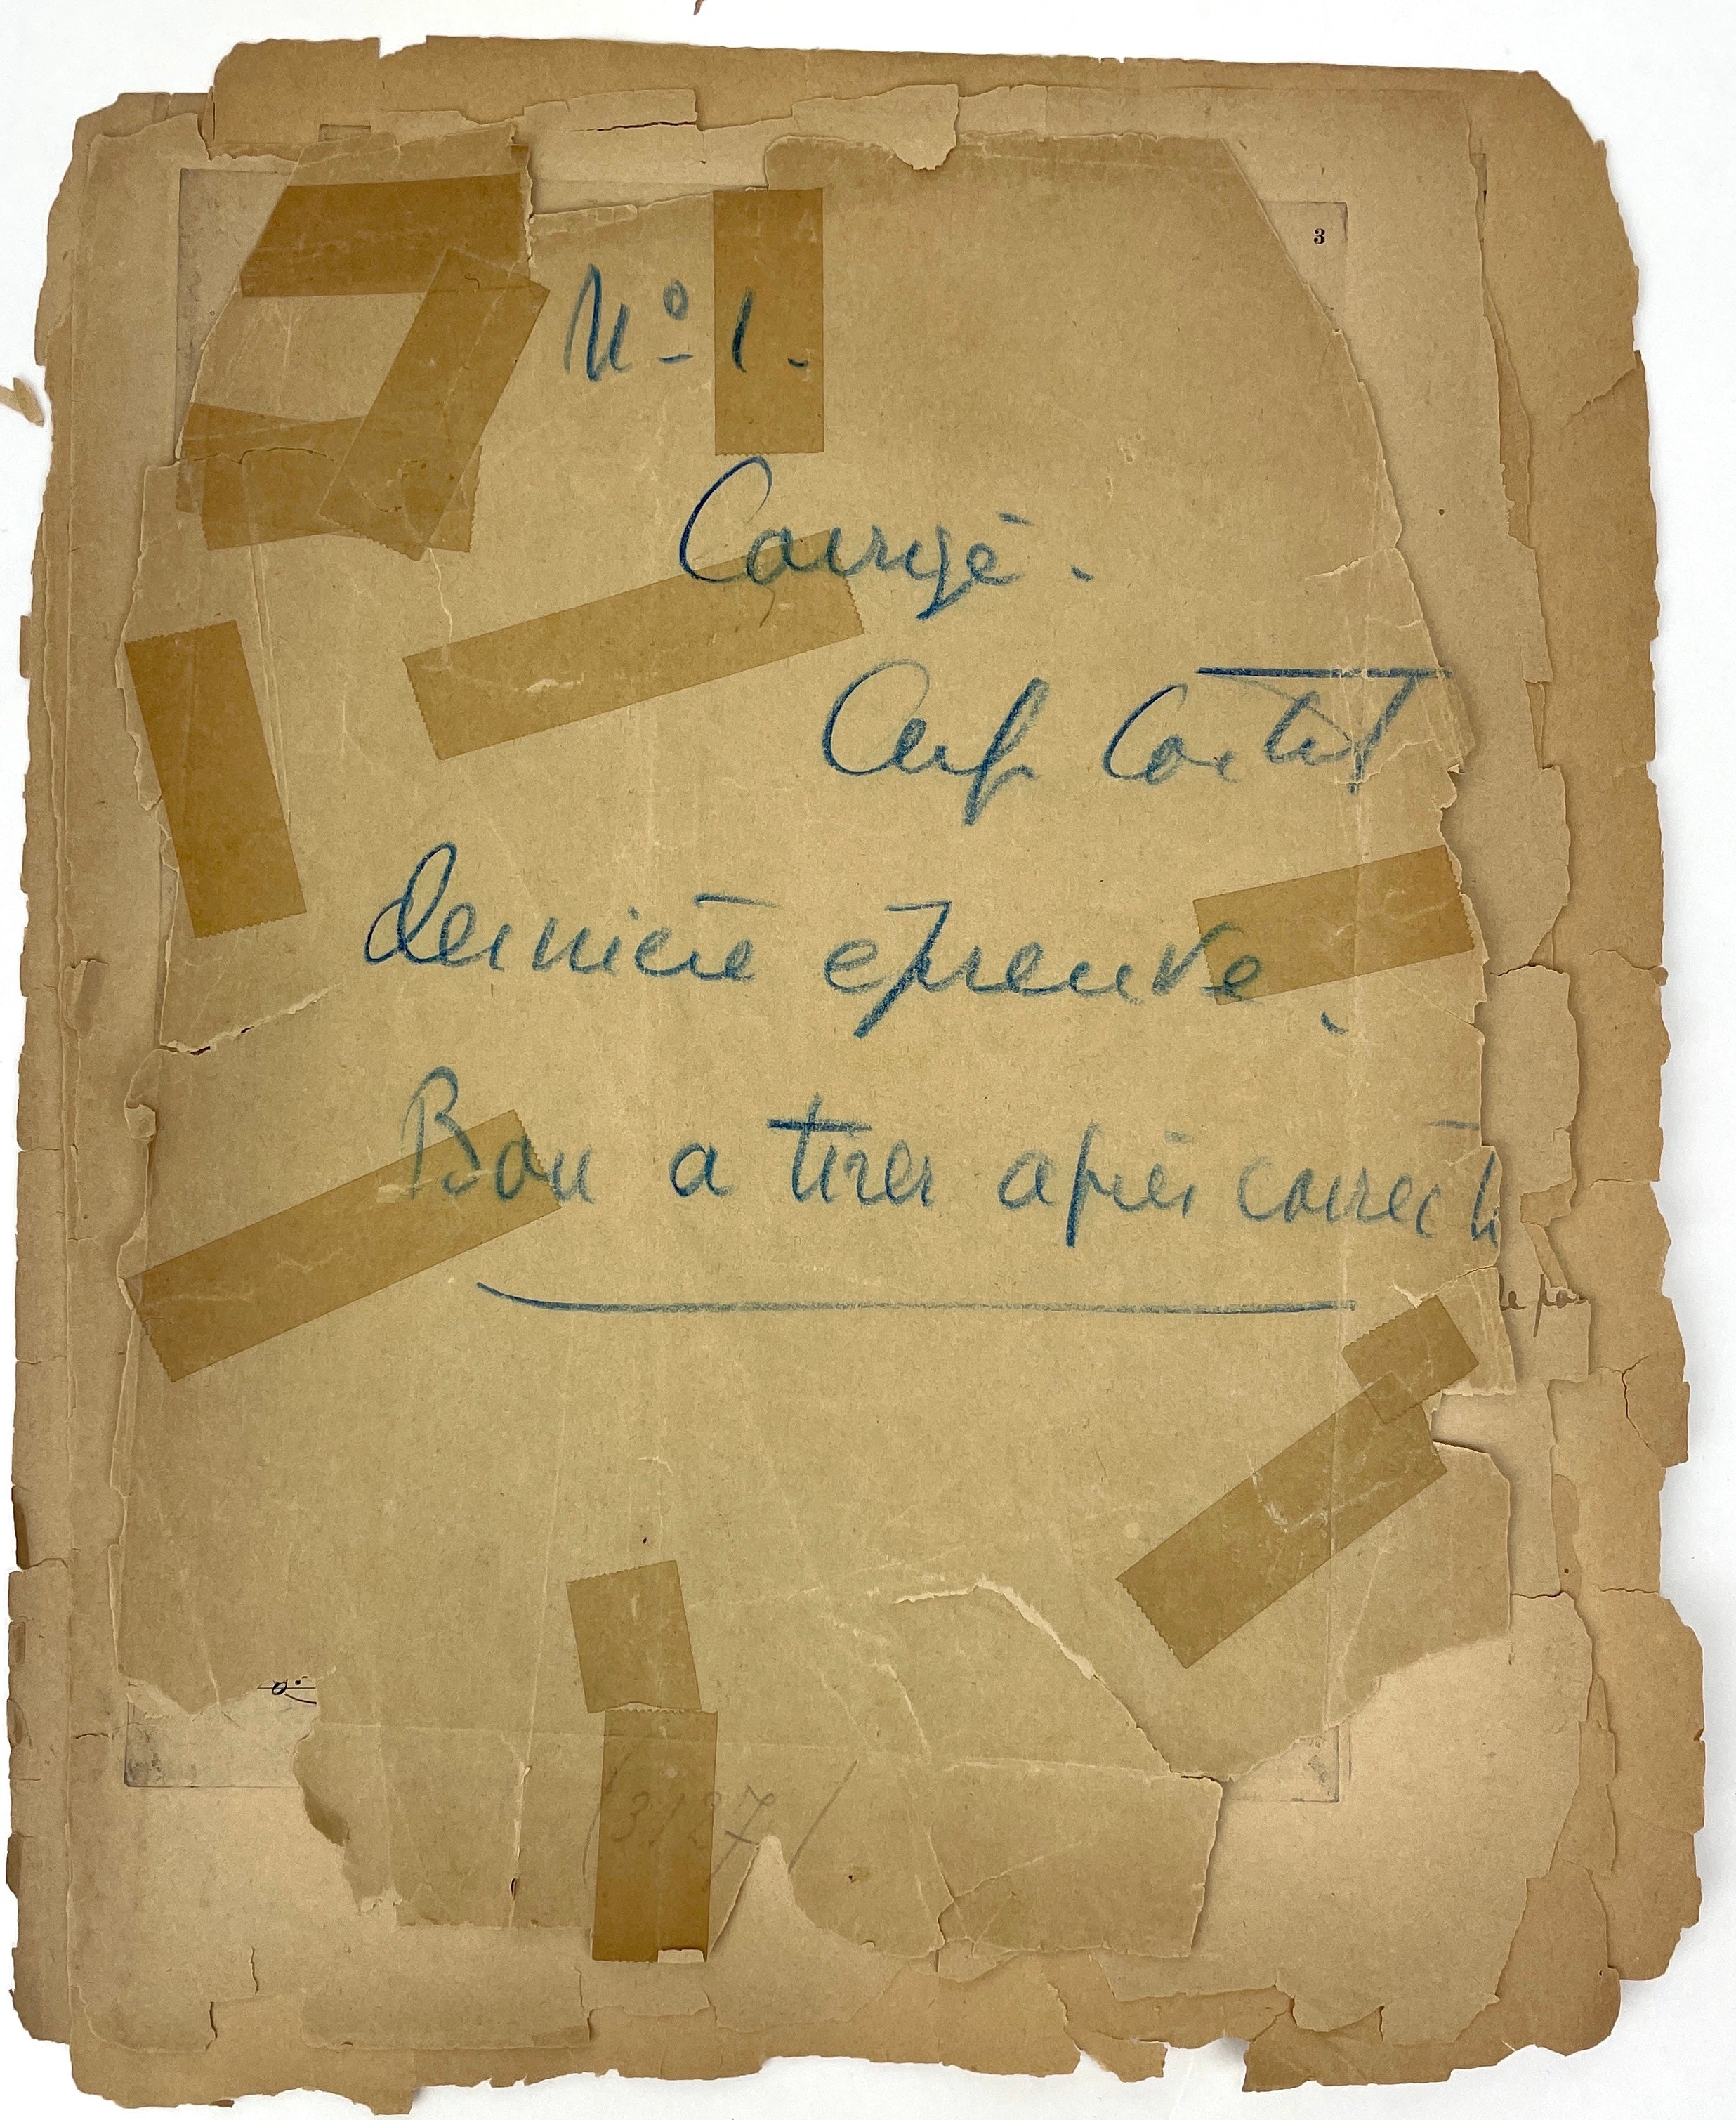 3
Nº 1.
Corrigé.
Cortot
dernière épreuve.
Bon a tirer après correcti
(3127)